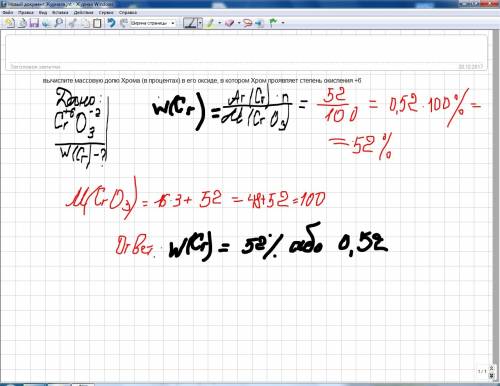 Новый документ Журнала.jnt - Журнал Windows
Файл Правка Вид Вставка Действия Сервис Справка
Ширина страницы
Заголовок заметки
20.12.2017
вычислите массовую долю Хрома (в процентах) в его оксиде, в котором Хром проявляет степень окисления +6
Дано:
Cr⁺⁶O₃⁻²
W(Cr)-?
W(Cr) = Ar(Cr)·n / M(CrO₃) = 52/100 = 0,52·100% =
= 52%
M(CrO₃) = 16·3 + 52 = 48+52=100
Ответ: W(Cr) = 52% або 0,52
1 / 1